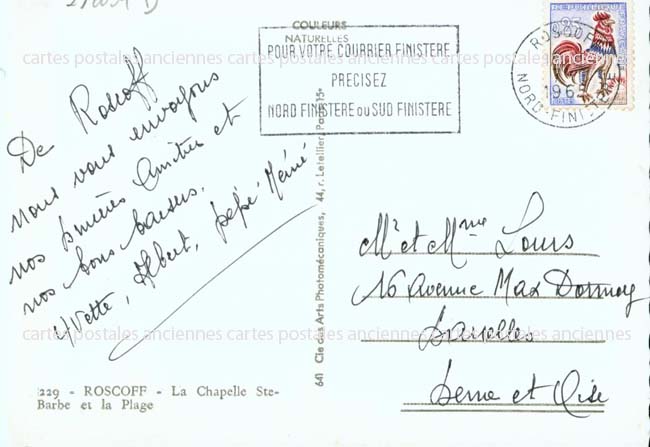 COULEURS
NATURELLES
POUR VOTRE COURRIER FINISTERE
PRECISEZ
NORD FINISTERE OU SUD FINISTERE
ROSCOFF
196
NORD-FINISTERE
cartes postales anciennes cartes postales anciennes cartes postales anciennes
De Roscoff
nous vous envoyons
nos sincères Amitiés et
nos bons baisers.
Yvette, Albert, pépé Mémé
641 Cie des Arts Photomécaniques, 44, r. Letellier, Paris 15e
Mr et Mme Louis
16 Avenue Max Dormoy
Sarcelles
Seine et Oise
cartes postales anciennes cartes postales anciennes cartes postales anciennes
229 - ROSCOFF - La Chapelle Ste-
Barbe et la Plage